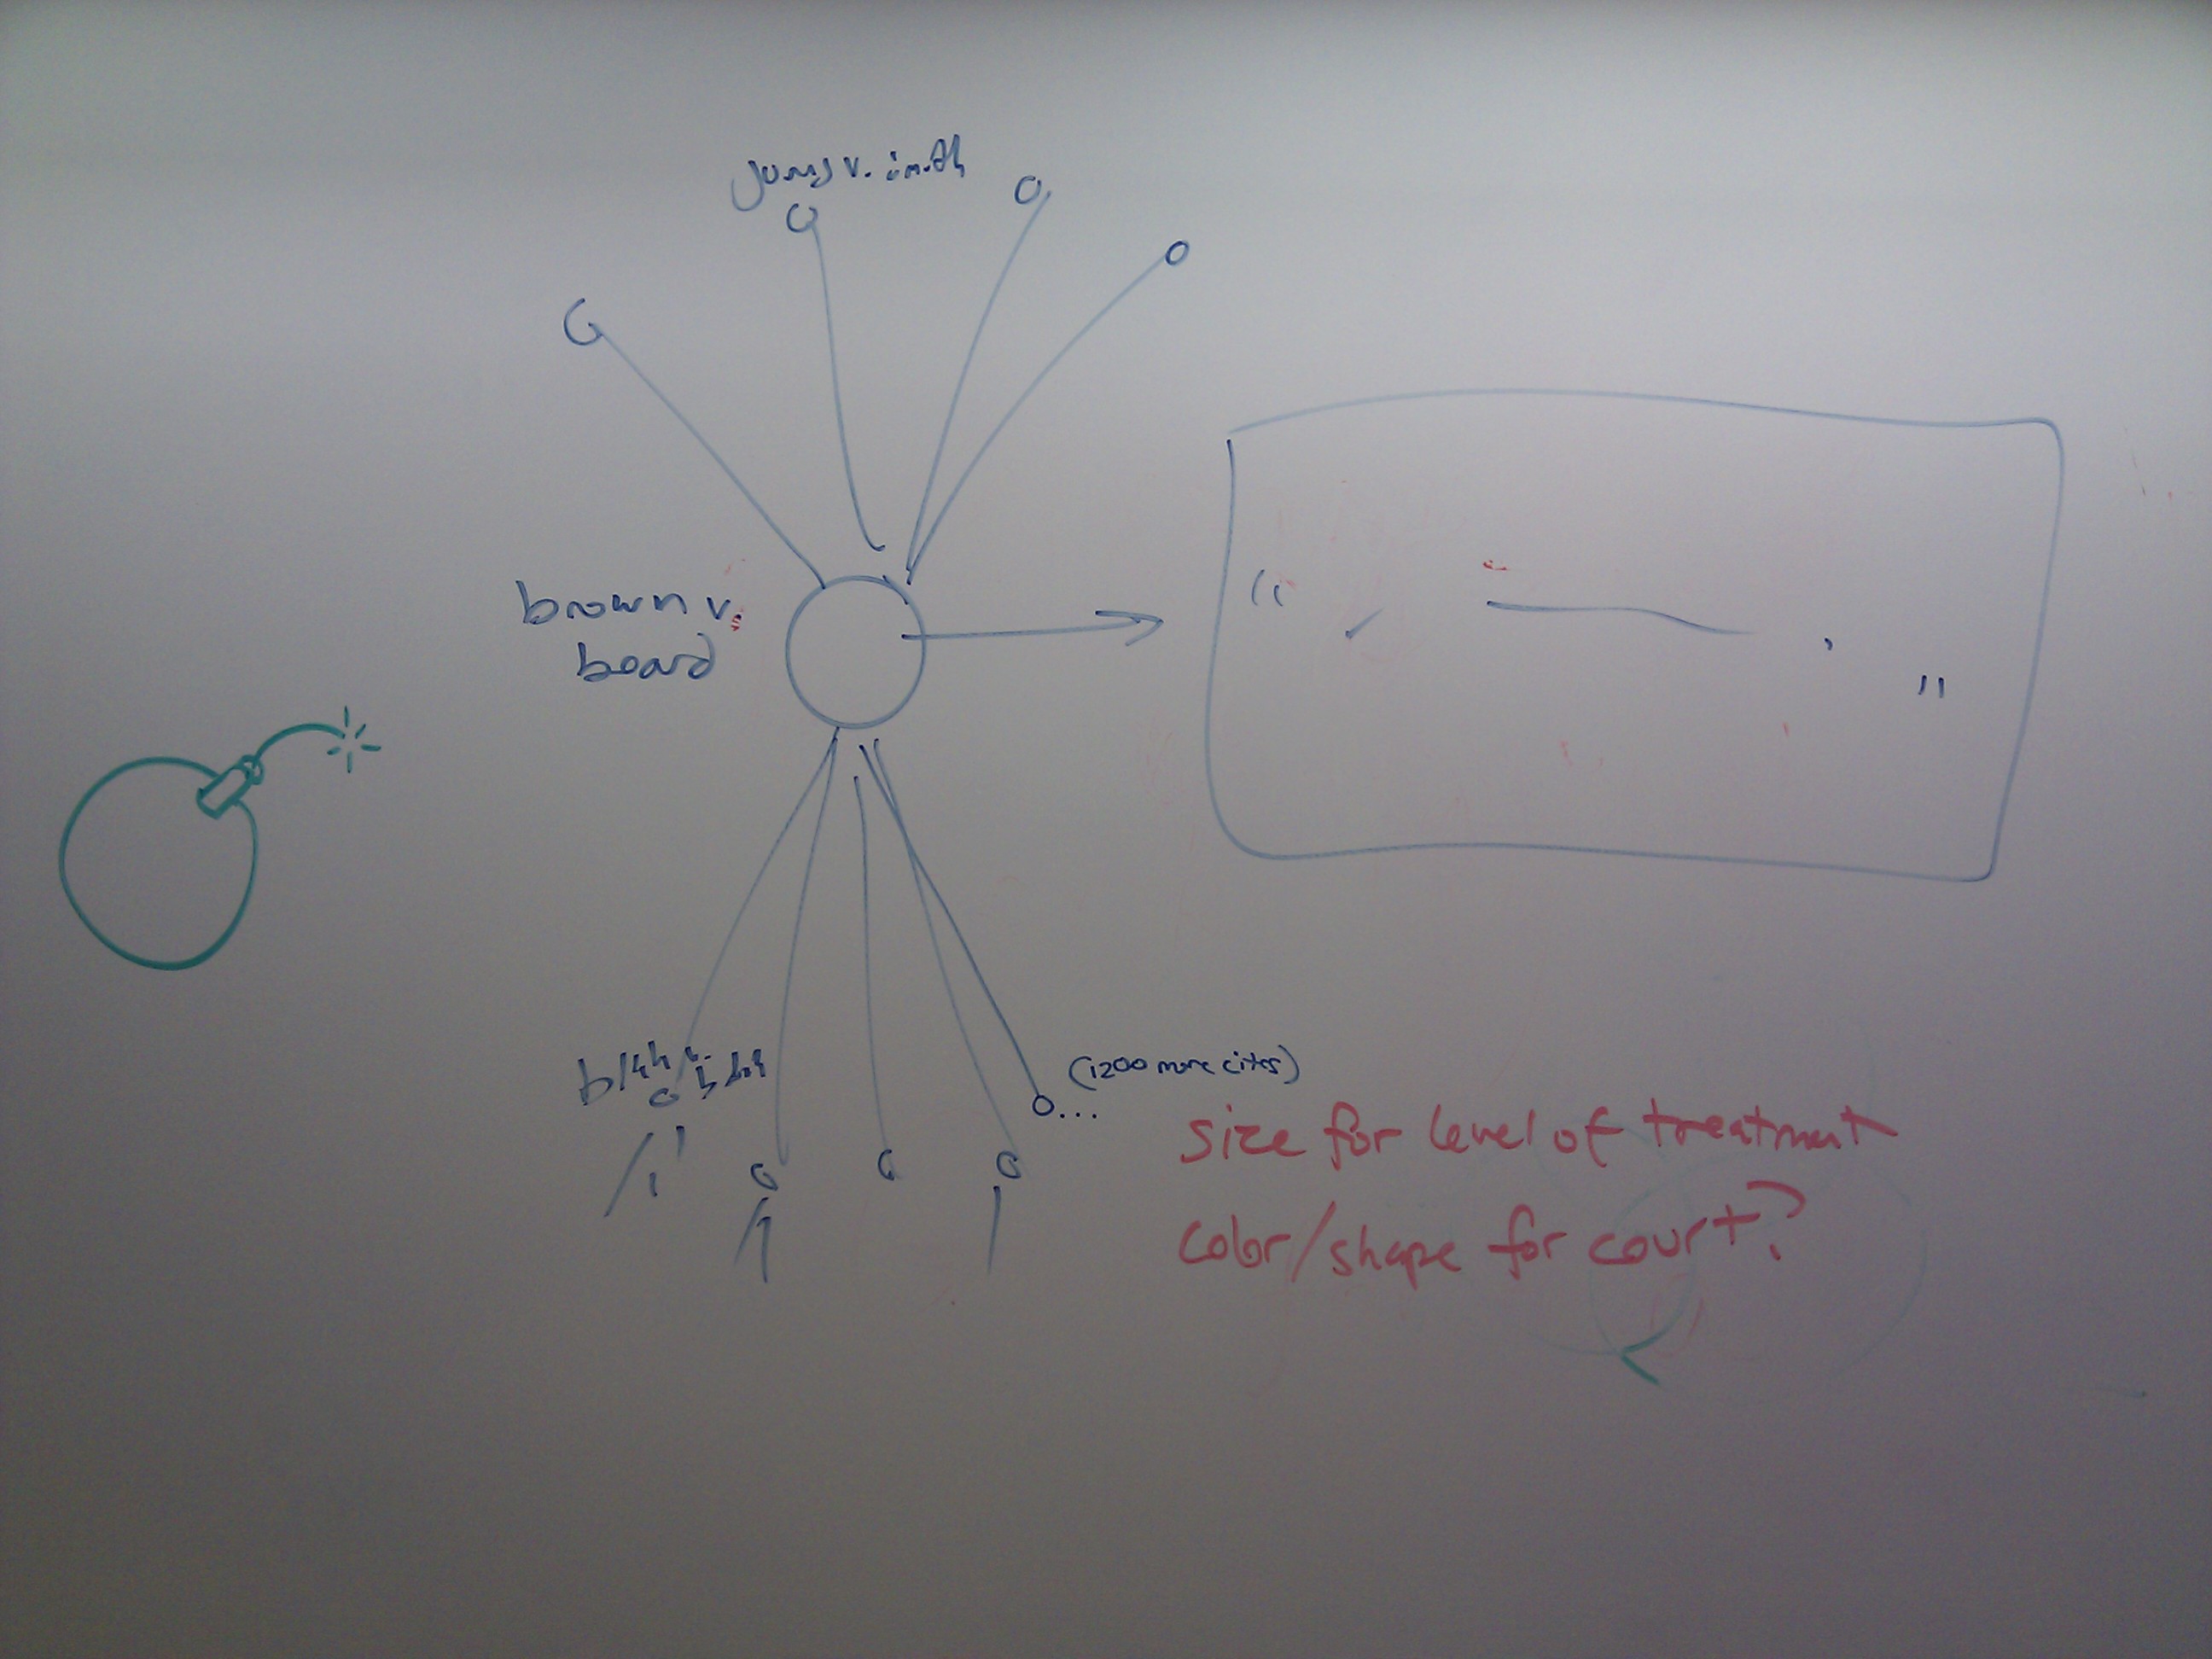 jones v. smith
brown v.
board
blah v. blah
(1200 more cites)
...
size for level of treatment
color/shape for court?